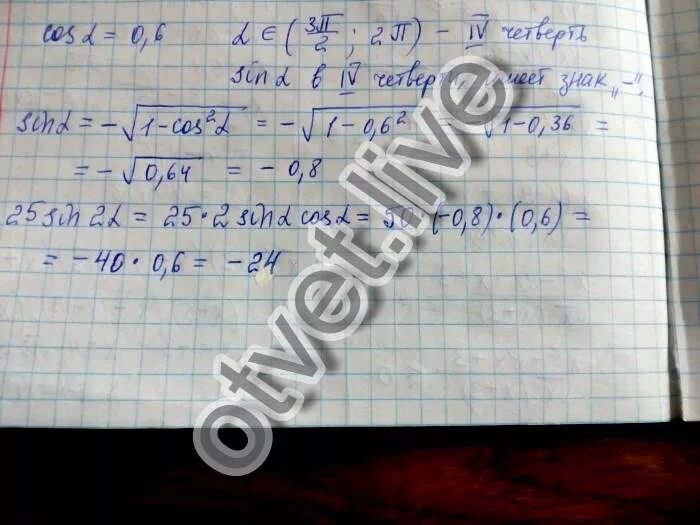 cos α = 0,6 α ∈ (3π/2; 2π) – IV четверть
sin α в IV четверти имеет знак „–“.
sin α = –√(1–cos²α) = –√(1–0,6²) = √(1–0,36) =
= –√0,64 = – 0,8
25 sin 2α = 25·2 sin α cos α = 50·(–0,8)·(0,6) =
= –40·0,6 = –24
otvet.live